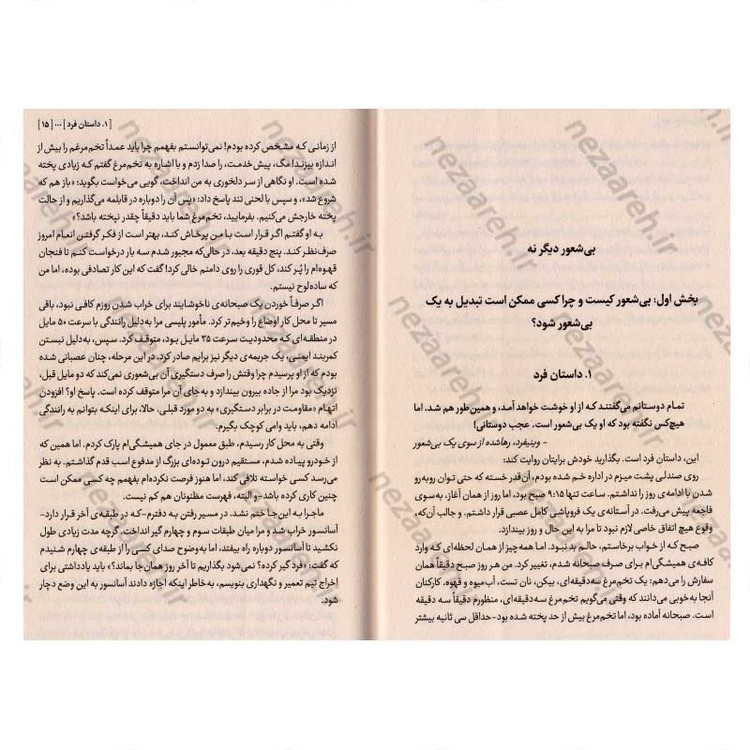 بی‌شعور دیگر نه
بخش اول: بی‌شعور کیست و چرا کسی ممکن است تبدیل به یک
بی‌شعور شود؟
۱. داستان فرد
تمام دوستانم می‌گفتند که از او خوشت خواهد آمد، و همین‌طور هم شد. اما
هیچ‌کس نگفته بود که او یک بی‌شعور است. عجب دوستانی!
- وینیفرد، رهاشده از سوی یک بی‌شعور
این، داستان فرد است. بگذارید خودش برایتان روایت کند:
روی صندلی پشت میزم در اداره خم شده بودم، آن‌قدر خسته که حتی توان روبه‌رو
شدن با ادامه‌ی روز را نداشتم. ساعت تنها ۹:۱۵ صبح بود، اما روز از همان آغاز، به‌سوی
فاجعه پیش می‌رفت. در آستانه‌ی یک فروپاشی کامل عصبی قرار داشتم. و جالب آن‌که،
وقوع هیچ اتفاق خاصی لازم نبود تا مرا به این حال و روز بیندازد.
صبح که از خواب برخاستم، حالم بد نبود. اما همه‌چیز از همان لحظه‌ای که وارد
کافه‌ی همیشگی‌ام برای صرف صبحانه شدم، تغییر کرد. من هر روز صبح دقیقاً همان
سفارش را می‌دهم: یک تخم‌مرغ سه‌دقیقه‌ای، بیکن، نان تست، آب‌میوه و قهوه. کارکنان
آنجا به‌خوبی می‌دانند که وقتی می‌گویم تخم‌مرغ سه‌دقیقه‌ای، منظورم دقیقاً سه دقیقه
است. صبحانه آماده بود، اما تخم‌مرغ بیش از حد پخته شده بود-حداقل سی ثانیه بیشتر
[ ۱. داستان فرد ] ... [ ۱۵ ]
از زمانی که مشخص کرده بودم! نمی‌توانستم بفهمم چرا باید عمداً تخم‌مرغم را بیش از
اندازه بپزند! مگ، پیش‌خدمت، را صدا زدم و با اشاره به تخم‌مرغ گفتم که زیادی پخته
شده است. او نگاهی از سر دلخوری به من انداخت، گویی می‌خواست بگوید: «باز هم که
شروع شد»، و سپس با لحنی تند پاسخ داد: «پس آن را دوباره در قابلمه می‌گذاریم و از حالت
پخته خارجش می‌کنیم. بفرمایید، تخم‌مرغ شما باید دقیقاً چقدر نپخته باشد؟»
به او گفتم اگر قرار است با من پرخاش کند، بهتر است از فکر گرفتن انعام امروز
صرف‌نظر کند. پنج دقیقه بعد، در حالی‌که مجبور شدم سه بار درخواست کنم تا فنجان
قهوه‌ام را پُر کند، کل قوری را روی دامنم خالی کرد! گفت که این کار تصادفی بوده، اما من
که ساده‌لوح نیستم.
اگر صرفاً خوردن یک صبحانه‌ی ناخوشایند برای خراب شدن روزم کافی نبود، باقی
مسیر تا محل کار اوضاع را وخیم‌تر کرد. مأمور پلیسی مرا به‌دلیل رانندگی با سرعت ۵۰ مایل
در منطقه‌ای که محدودیت سرعت ۳۵ مایل بود، متوقف کرد. سپس، به‌دلیل نبستن
کمربند ایمنی، یک جریمه‌ی دیگر نیز برایم صادر کرد. در این مرحله، چنان عصبانی شده
بودم که از او پرسیدم چرا وقتش را صرف دستگیری آن بی‌شعوری نمی‌کند که دو مایل قبل،
نزدیک بود مرا از جاده بیرون بیندازد و به‌جای آن مرا متوقف کرده است. پاسخ او؟ افزودن
اتهام «مقاومت در برابر دستگیری» به دو مورد قبلی. حالا، برای اینکه بتوانم به رانندگی
ادامه دهم، باید وامی کوچک بگیرم.
وقتی به محل کار رسیدم، طبق معمول در جای همیشگی‌ام پارک کردم. اما همین که
از خودرو پیاده شدم، مستقیم درون توده‌ای بزرگ از مدفوع اسب قدم گذاشتم. به نظر
می‌رسد کسی خواسته تلافی کند، اما هنوز فرصت نکرده‌ام بفهمم چه کسی ممکن است
چنین کاری کرده باشد-و البته، فهرست مظنونان هم کم نیست.
ماجرا به این‌جا ختم نشد. در مسیر رفتن به دفترم-که در طبقه‌ی آخر قرار دارد-
آسانسور خراب شد و مرا میان طبقات سوم و چهارم گیر انداخت. گرچه مدت زیادی طول
نکشید تا آسانسور دوباره راه بیفتد، اما به‌وضوح صدای کسی را از طبقه‌ی چهارم شنیدم
که گفت: «فرد گیر کرده؟ نمی‌شود بگذاریم تا آخر روز همان‌جا بماند؟» باید یادداشتی برای
اخراج تیم تعمیر و نگهداری بنویسم، به‌خاطر اینکه اجازه دادند آسانسور به این وضع دچار
شود.
nezaareh.ir